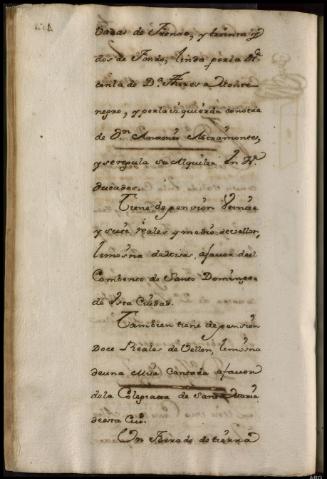 baras de Frente, y treinta y
dos de Fondo, linda por la de
de Dª Theresa Monte
negro, y por la izquierda con otra
de Dn Antonio Miramontes,
y se regula su Alquiler en
Ducados.
Tiene de pension Veinte
y siete Reales y medio de vellon,
limosna de Misas, a favor del
Combento de Santo Domingo
de esta Ciudad.
Tambien tiene de pension
Doce Reales de Vellon, limosna
de una Misa Cantada a favor
de la Colegiata de Santa Maria
de esta Ciud.
Un Ferrado de tierra